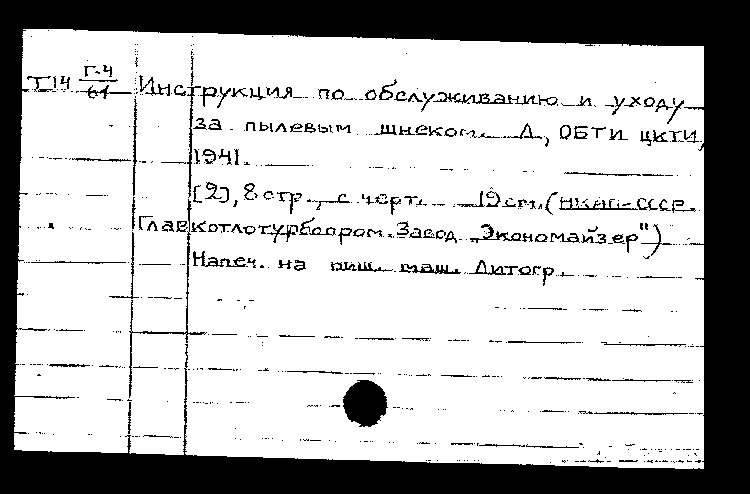 Т14 Г-4/61 Инструкция по обслуживанию и уходу
за пылевым шнеком. Л., ОБТИ ЦКТИ,
1941.
[2], 8 стр., с черт. 19 см. (НКЭП-СССР.
Главкотлотурбопром. Завод „Экономайзер")
Напеч. на пиш. маш. Литогр.